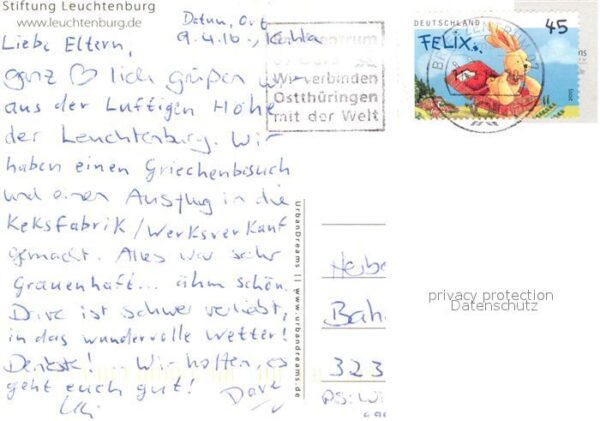 Stiftung Leuchtenburg
www.leuchtenburg.de
Datum, Ort
9.4.16, Kahla
Liebe Eltern,
ganz ♡lich grüßen wir
aus der Luftigen Höhe
der Leuchtenburg. Wir
haben einen Griechenbesuch
und einen Ausflug in die
Keksfabrik/Werksverkauf
gemacht. Alles war sehr
Grauenhaft... ähm schön.
Dave ist schwer verliebt,
in das wundervolle Wetter!
Denkste! Wir hoffen, es
geht euch gut! Dave
Wir verbinden
Ostthüringen
mit der Welt
DEUTSCHLAND 45
FELIX
2015
BRIEFZENTRUM 07
UrbanDreams || www.urbandreams.de
Bah
323
PS: Wi
privacy protection
Datenschutz